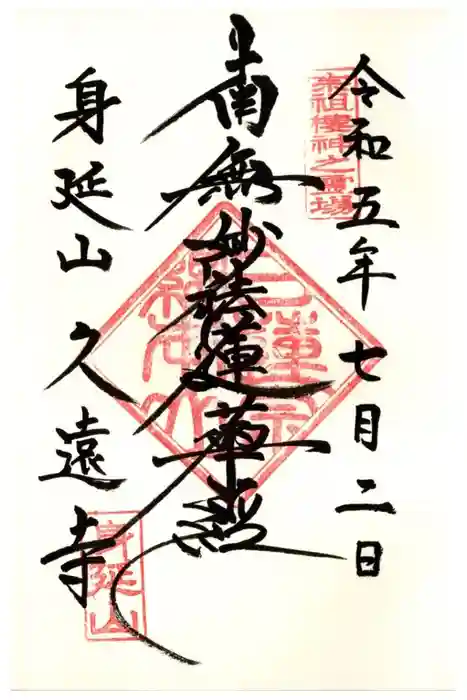 宗祖棲神之霊場
令和五年七月二日
南無妙法蓮華経
日蓮宗
総本山
身延山久遠寺
身延山